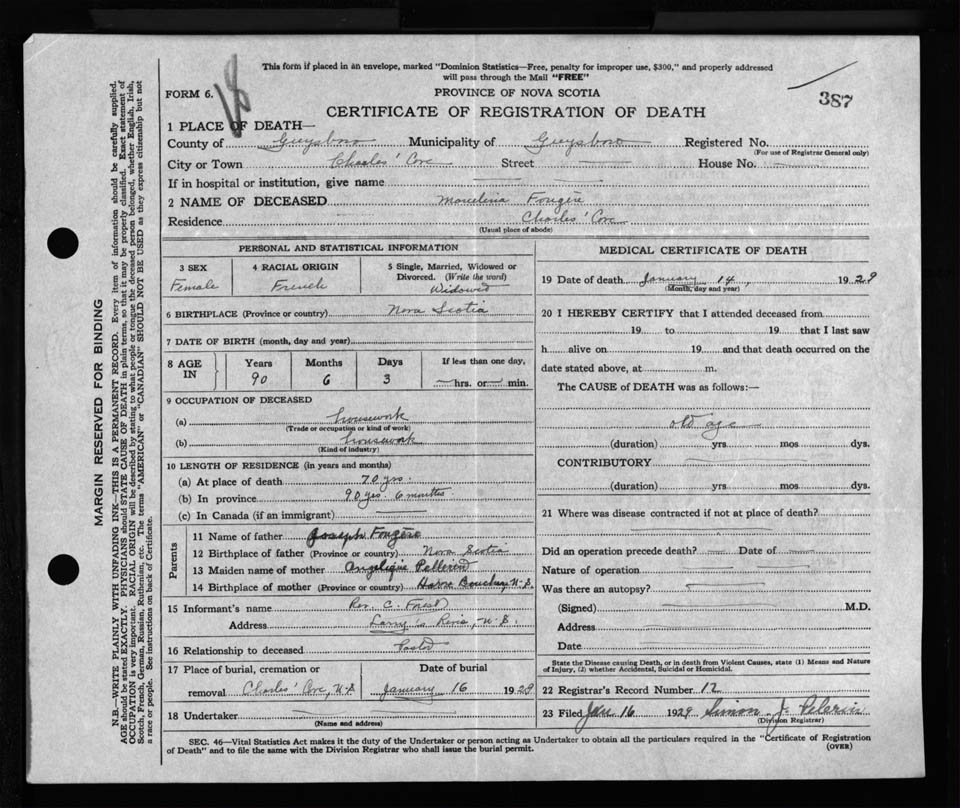 This form if placed in an envelope, marked "Dominion Statistics—Free, penalty for improper use, $300," and properly addressed
will pass through the Mail "FREE"
FORM 6.
18
PROVINCE OF NOVA SCOTIA
387
CERTIFICATE OF REGISTRATION OF DEATH
1 PLACE OF DEATH—
County of Guysboro Municipality of Guysboro Registered No.
(For use of Registrar General only)
City or Town Charles' Cove Street — House No. —
If in hospital or institution, give name —
2 NAME OF DECEASED Fougère
Residence Charles' Cove
(Usual place of abode)
PERSONAL AND STATISTICAL INFORMATION
3 SEX 4 RACIAL ORIGIN 5 Single, Married, Widowed or
Divorced. (Write the word)
Female French Widowed
6 BIRTHPLACE (Province or country) Nova Scotia
7 DATE OF BIRTH (month, day and year)
8 AGE IN Years Months Days If less than one day,
90 6 3 — hrs. or — min.
9 OCCUPATION OF DECEASED
(a) housework
(Trade or occupation or kind of work)
(b) housework
(Kind of industry)
10 LENGTH OF RESIDENCE (in years and months)
(a) At place of death 70 yrs.
(b) In province 90 yrs. 6 months.
(c) In Canada (if an immigrant) —
Parents
11 Name of father Joseph Fougère
12 Birthplace of father (Province or country) Nova Scotia
13 Maiden name of mother Angelique Pellerin
14 Birthplace of mother (Province or country) Havre Boucher, N-S.
15 Informant's name Rev. C. Forest
Address Larry's River, N-S.
16 Relationship to deceased Pastor
17 Place of burial, cremation or Date of burial
removal Charles' Cove, N-S January 16 1929
18 Undertaker —
(Name and address)
MEDICAL CERTIFICATE OF DEATH
19 Date of death January 14, 1929
(Month, day and year)
20 I HEREBY CERTIFY that I attended deceased from
19 to 19 that I last saw
h alive on 19 and that death occurred on the
date stated above, at m.
The CAUSE of DEATH was as follows:—
old age
(duration) yrs mos dys.
CONTRIBUTORY —
(duration) yrs mos dys.
21 Where was disease contracted if not at place of death?
—
Did an operation precede death? — Date of —
Nature of operation —
Was there an autopsy? —
(Signed) — M.D.
Address
Date —
State the Disease causing Death, or in death from Violent Causes, state (1) Means and Nature
of Injury, (2) whether Accidental, Suicidal or Homicidal.
22 Registrar's Record Number 12
23 Filed Jan 16 1929 Simon J. Pelerin
(Division Registrar)
SEC. 46—Vital Statistics Act makes it the duty of the Undertaker or person acting as Undertaker to obtain all the particulars required in the "Certificate of Registration
of Death" and to file the same with the Division Registrar who shall issue the burial permit.
(OVER)
MARGIN RESERVED FOR BINDING
N.B.—WRITE PLAINLY WITH UNFADING INK—THIS IS A PERMANENT RECORD. Every item of information should be carefully supplied.
AGE should be stated EXACTLY. PHYSICIANS should STATE CAUSE OF DEATH in plain terms, so that it may be properly classified. Exact statement of
OCCUPATION is very important. RACIAL ORIGIN will be described by stating to what people or tongue the deceased person belonged, whether English, Irish,
Scotch, French, German, Russian, Ruthenian, etc. The terms "AMERICAN" or "CANADIAN" SHOULD NOT BE USED as they express citizenship but not
a race or people. See instructions on back of Certificate.